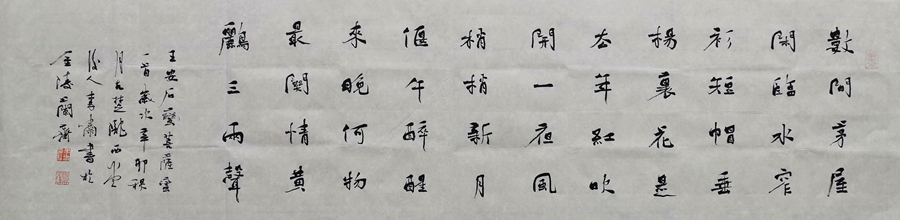 數間茅屋
閑臨水窄
衫短帽垂
楊裏花是
去年紅吹
開一夜風
梢梢新月
偃午醉醒
來晚何物
最關情黄
鸝三兩聲
王安石菩薩蠻
一首歲次辛卯秋
月古楚隴西堂
後人李嘯書於
金陵蘭齋